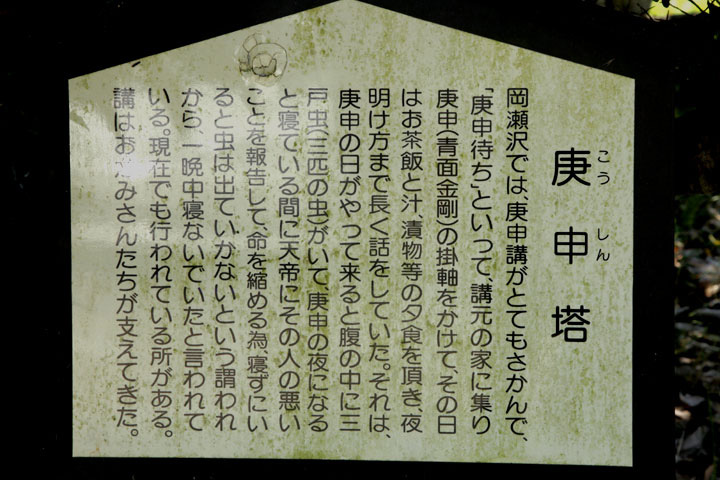 庚申塔
こうしん
岡瀬沢では、庚申講がとてもさかんで、
「庚申待ち」といって、講元の家に集り
庚申(青面金剛)の掛軸をかけて、その日
はお茶飯と汁、漬物等の夕食を頂き、夜
明け方まで長く話をしていた。それは、
庚申の日がやって来ると腹の中に三
戸虫(三匹の虫)がいて、庚申の夜になる
と寝ている間に天帝にその人の悪い
ことを報告して、命を縮める為寝ずにい
ると虫は出ていかないという謂われ
から、一晩中寝ないでいたと言われて
いる。現在でも行われている所がある。
講はお住みさんたちが支えてきた。